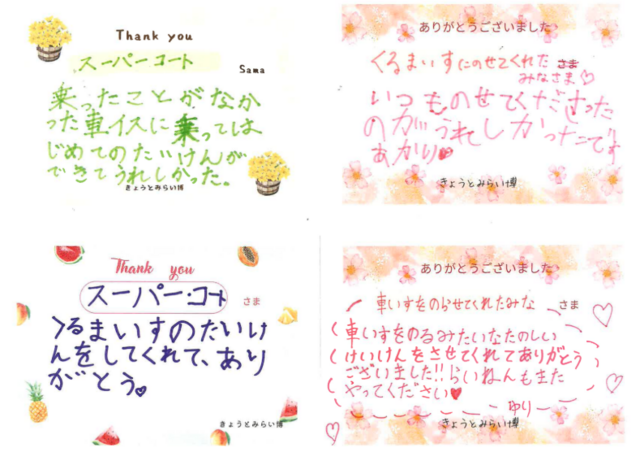 Thank you
スーパーコート
Sama
乗ったことがなか
った車イスに乗っては
じめてのたいけんが
できてうれしかった。
きょうとみらい博
ありがとうございました
くるまいすにのせてくれた さま
みなさま♡
いつものせてくださった
のがうれしかったです
あかり♥
きょうとみらい博
Thank you
スーパー・コート
さま
くるまいすのたいけ
んをしてくれて、あり
がとう♥
きょうとみらい博
ありがとうございました
車いすをのらせてくれたみな さま
車いすをのるみたいなたのしい
けいけんをさせてくれてありがとう
ございました!!らいねんもまた
やってください♥
ゆり
きょうとみらい博